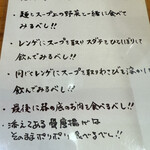 ・麺とスープ上の野菜と一緒に食べて
みるべし!!
・レンゲにスープを取りスダチをひとしぼりして
飲んでみるべし!!
・同じくレンゲにスープを取りわさびを溶かして
飲んでみるべし!!
・最後に器の底のお肉も食べるべし!!
・添えてある
そのままポリポリ食べるべし!!